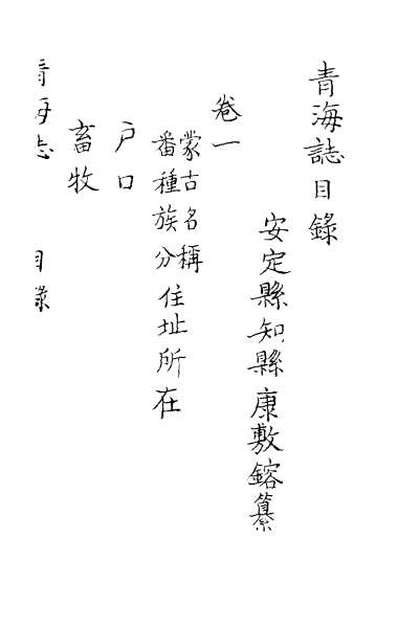 青海誌目錄
安定縣知縣康敷鎔纂
卷一
蒙古名稱
番種族分住址所在
户口
畜牧
青海志 目錄